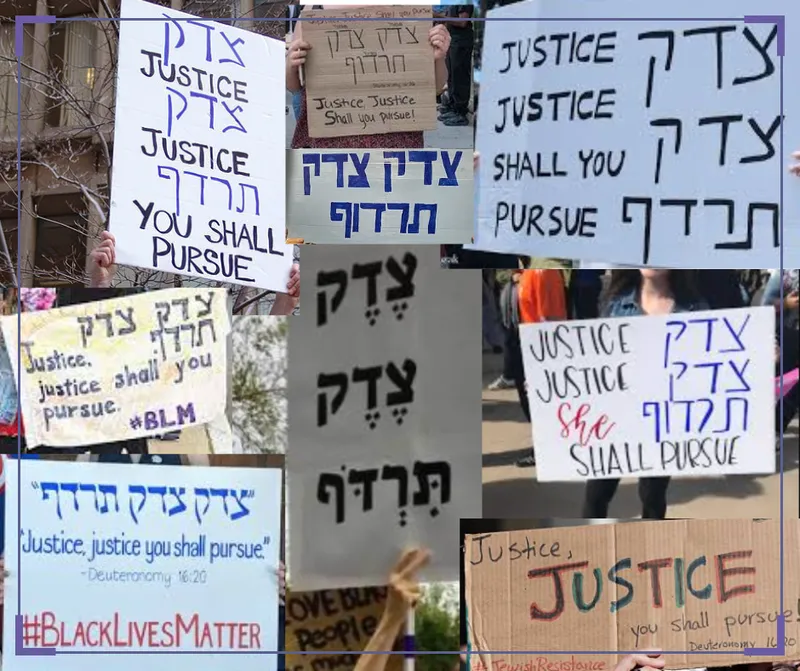 צדק
JUSTICE
צדק
JUSTICE
תרדף
YOU SHALL
PURSUE
Justice, Justice Shall you pursue
צדק צדק
תרדוף
Justice, Justice
Shall you pursue!
צדק צדק
תרדוף
JUSTICE צדק
JUSTICE צדק
SHALL YOU
PURSUE תרדף
צדק צדק
תרדף
Justice,
justice shall you
pursue.
#BLM
צֶדֶק
צֶדֶק
תִּרְדֹּף
JUSTICE צדק
JUSTICE צדק
She תרדוף
SHALL PURSUE
"צדק צדק תרדף"
"Justice, justice you shall pursue."
-Deuteronomy 16:20
#BLACKLIVESMATTER
LOVE BLACK
People
Justice,
JUSTICE
you shall pursue!
Deuteronomy 16:20
#JewishResistance